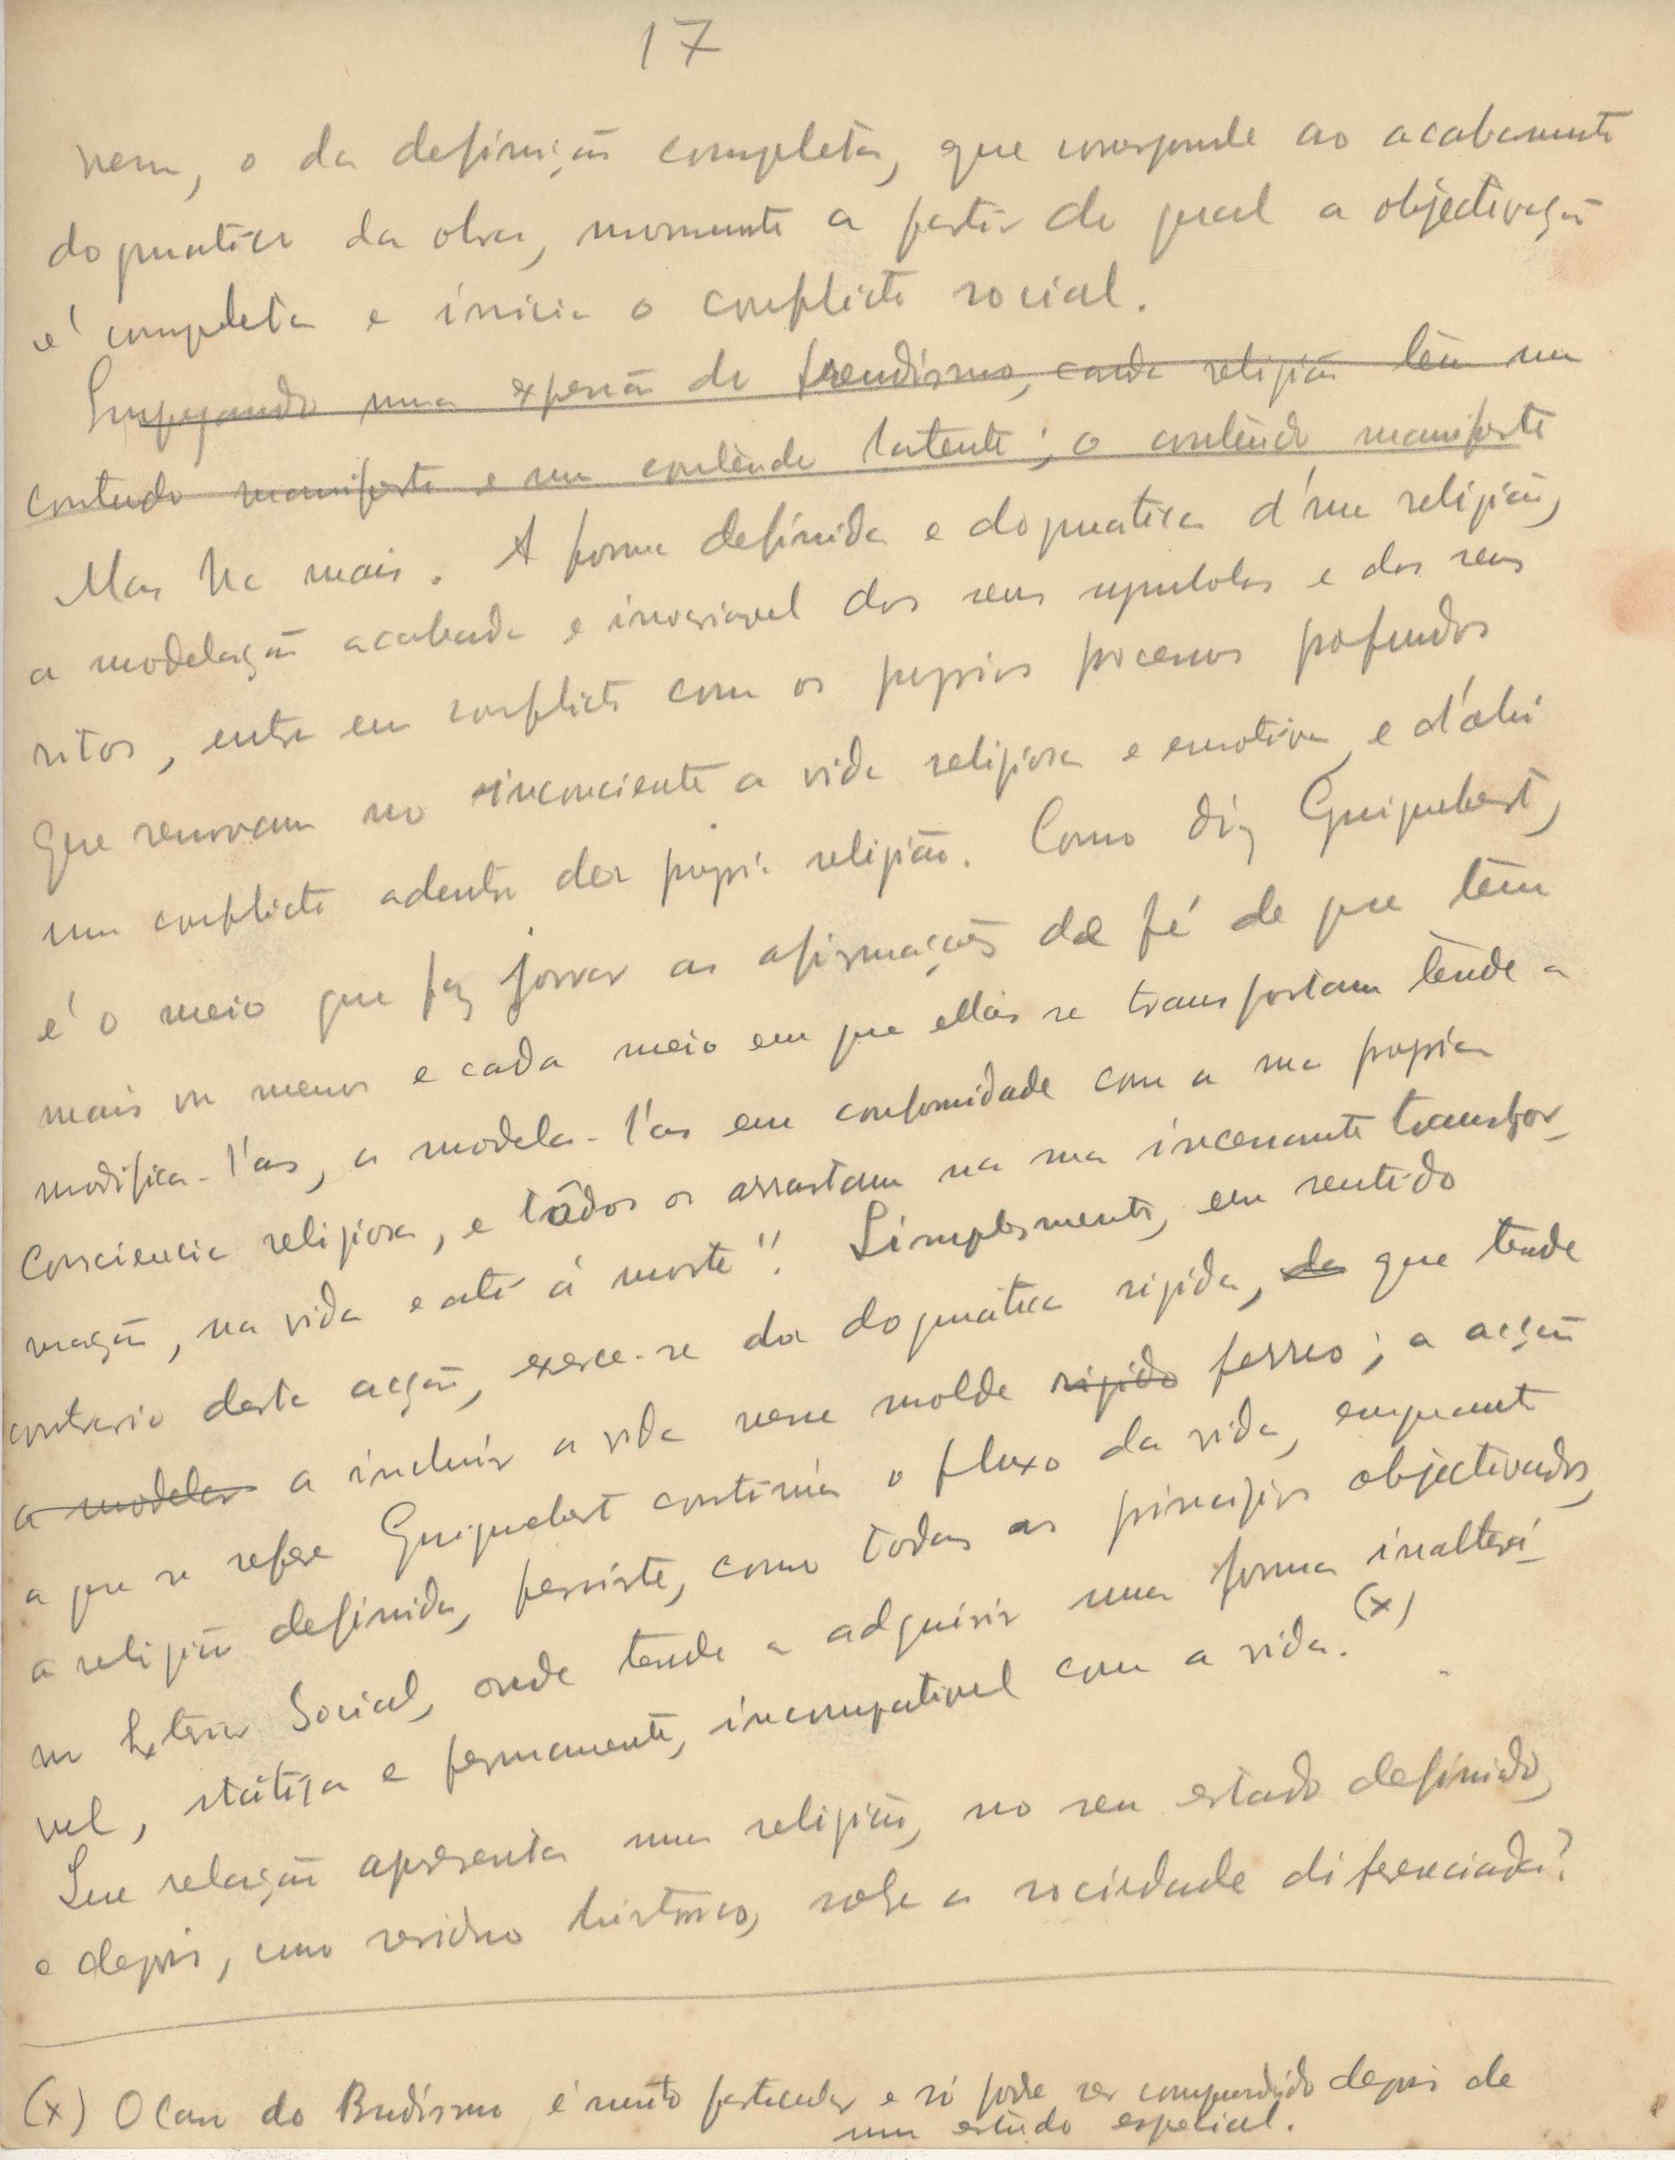 17
nem, o da definição completa, que corresponde ao acabamento
dogmatico da obra, momento a partir do qual a objectivação
é completa e inicia o conflicto social.
Empregando uma expressão do freudismo, cada religião tem um
contendo manifesto e um contêudo latente; o contêudo manifesto
Mas ha mais. A forma definida e dogmatica d'uma religião,
a modelação acabada e invariavel dos seus symbolos e dos seus
ritos, entra em conflicto com os proprios processos profundos
que renovam no inconciente a vida religiosa e emotiva, e d'ahi
um conflicto adentro da propria religião. Como diz Guignebert,
é o meio que faz jorrar as afirmações da fé de que têm
mais ou menos e cada meio em que ellas se transportam tende a
modifica-l'as, a modela-l'as em conformidade com a sua propria
consciencia religiosa, e tôdos os arrastam na sua incessante transfor-
mação, na vida e até á morte". Simplesmente, em sentido
contrario desta acção, exerce-se da dogmática rigida, da que tende
a modelar a incluir a vida nesse molde rigido ferreo; a acção
a que se refere Guignebert continúa o fluxo da vida, emquanto
a religião definida, persiste, como todos os principios objectivados,
no Exterior Social, onde tende a adquirir uma forma inalterá-
vel, stática e permanente, incompativel com a vida. (x)
Que relação apresenta uma religião, no seu estado definido,
e depois, como residuo historico, sobre a sociedade diferenciada?
(x) O caso do Budismo é muito particular e só pode ser comprendido depois de
um estudo especial.